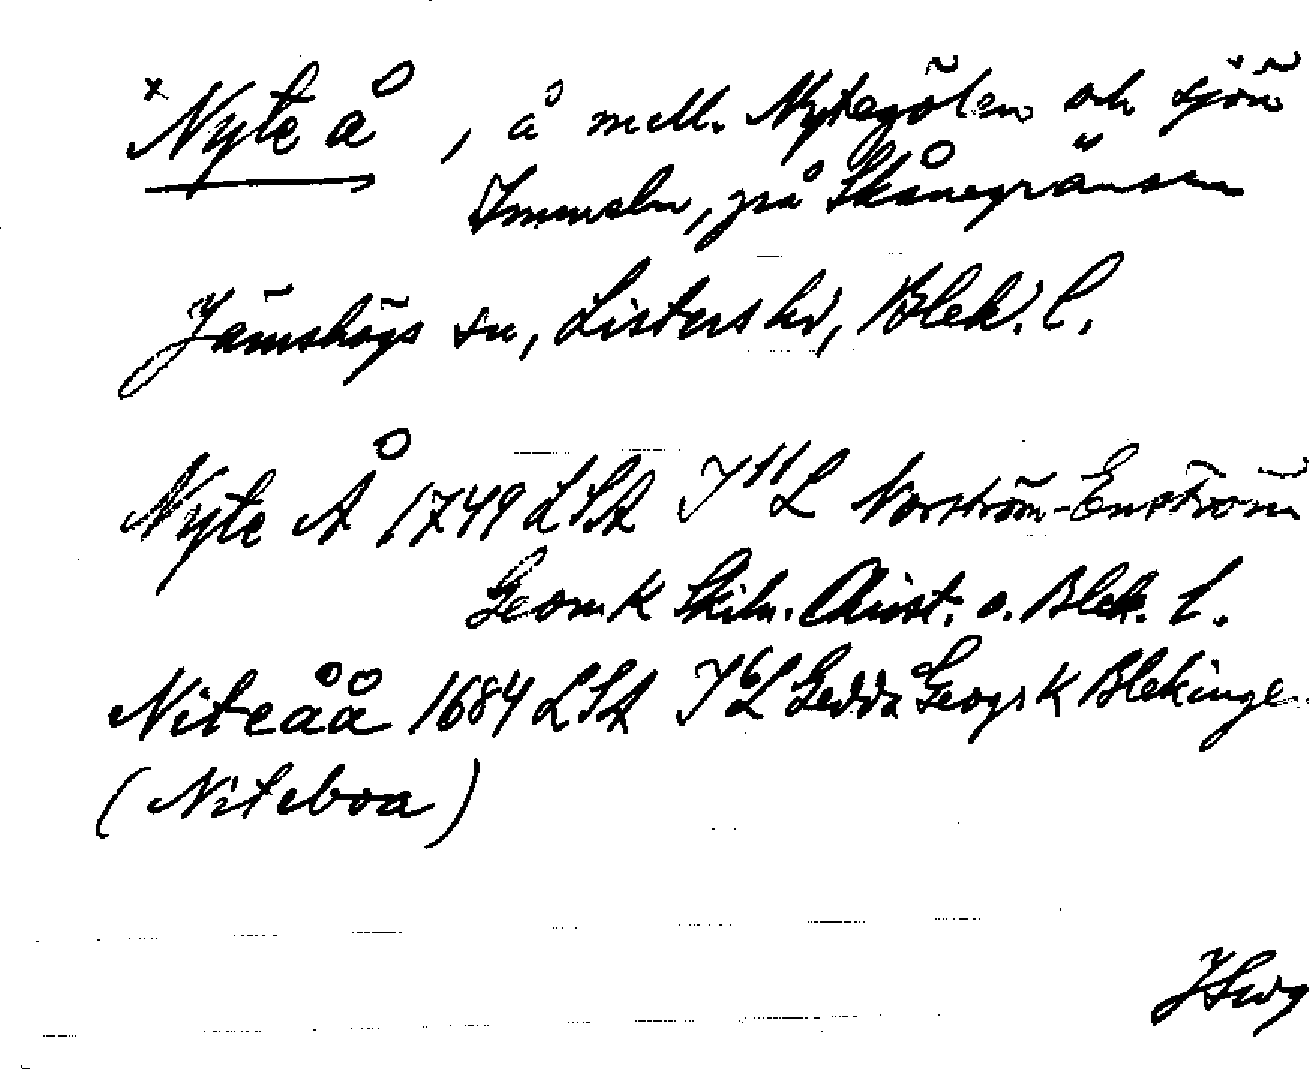 × Nyte å, å mell. Nytegölen och sjön
Immeln, på Skånegränsen
Jämshögs sn, Listers hd, Blek. l.
Nyte Å 1749 LSA I 11 L Norström-Enström
Geom K Skiln. Christ. o. Blek. l.
Niteåå 1684 LSA I 6 L Gedda Geogr K Blekinge
(Niteboa)